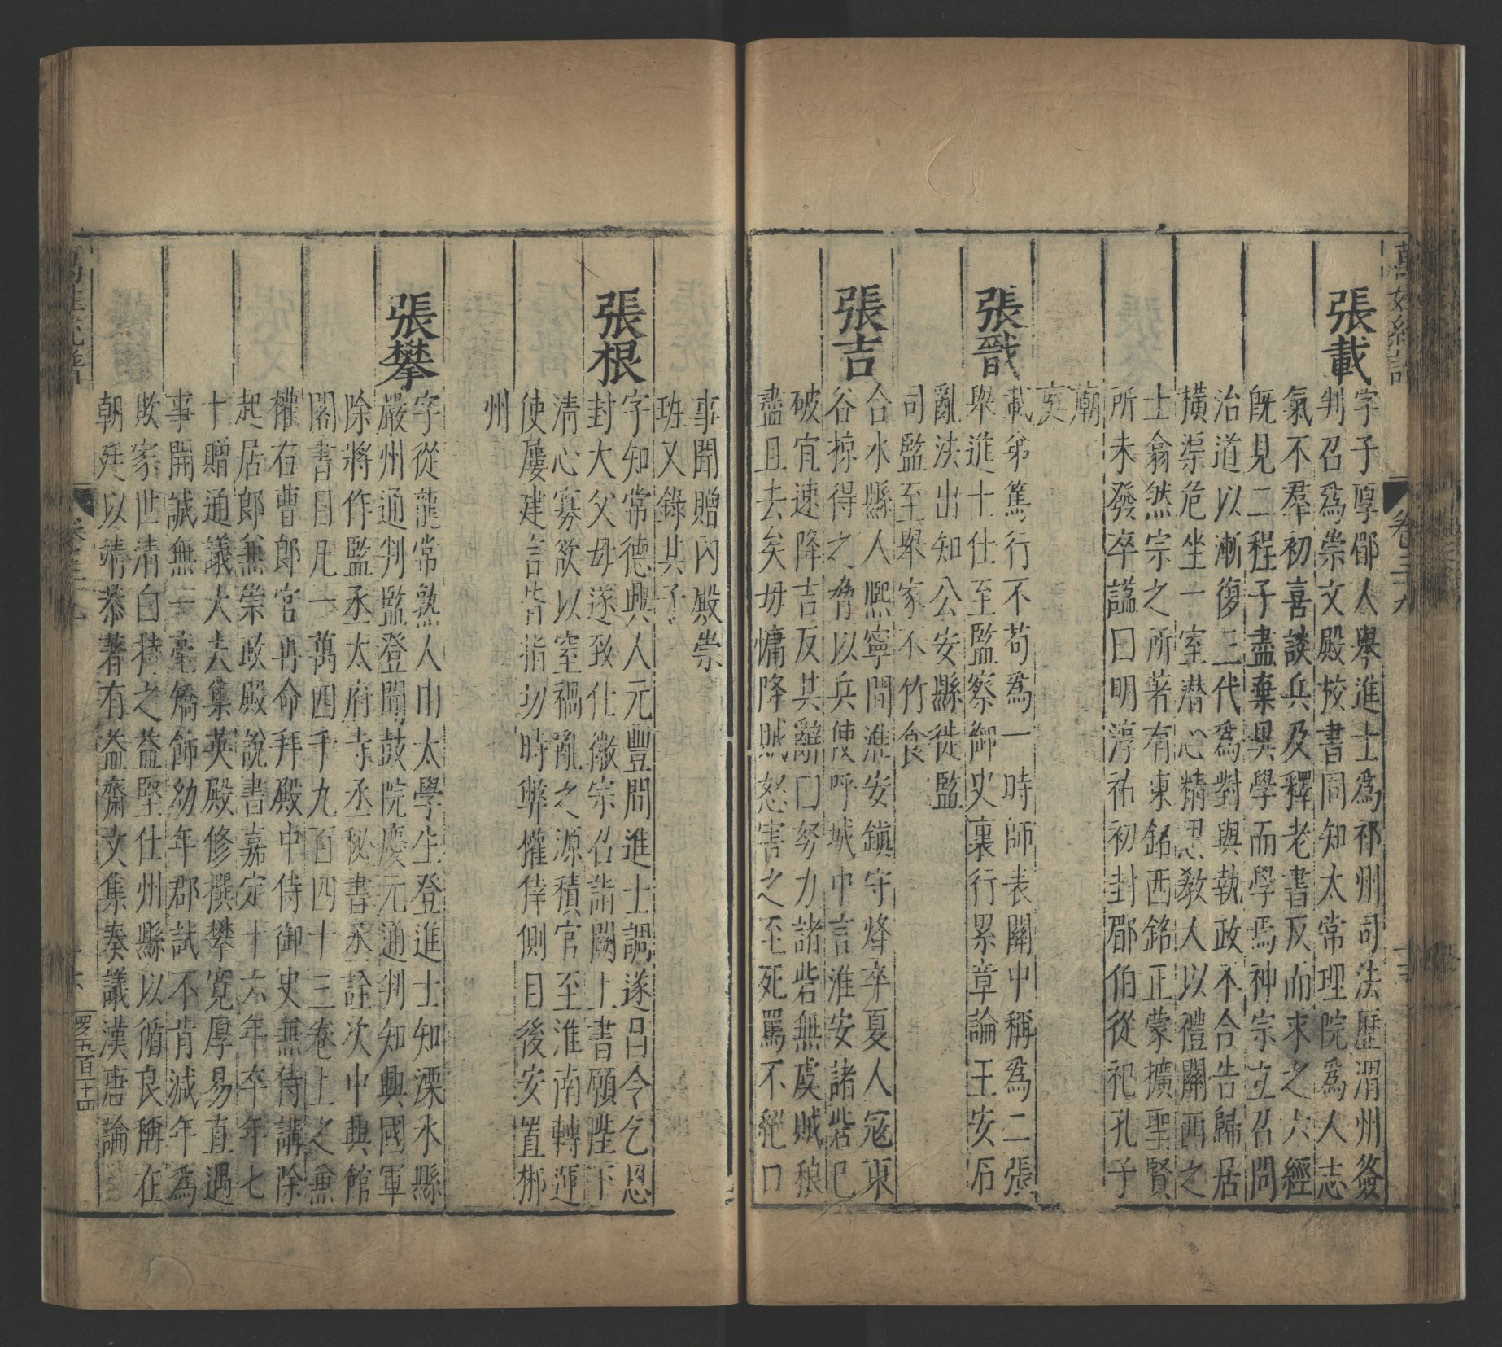 萬姓統譜
卷三十九
張載
字子厚郿人舉進士爲祁州司法歷渭州簽
判召爲崇文殿校書同知太常理院爲人志
氣不羣初喜談兵及釋老書反而求之六經
旣見二程子盡棄異學而學焉神宗立召問
治道以漸復三代爲對與執政不合告歸居
橫渠危坐一室潜心精思敎人以禮關西之
士翕然宗之所著有東銘西銘正蒙擴聖賢
所未發卒謚曰明淳祐初封郿伯從祀孔子
廟
張戩
載弟篤行不苟爲一時師表關中稱爲二張
舉進士仕至監察御史裏行累章論王安石
亂法出知公安縣徙監
司監至舉家不竹食
張吉
合水縣人熈寧間淮安鎭守烽卒夏人冦東
谷掠得之脅以兵使呼城中言淮安諸砦已
破宜速降吉反其辭囗努力諸砦無虞賊狼
盡且去矣毋慵降賊怒害之至死罵不絕口
事聞贈内殿崇
班又錄其子
張根
字知常德興人元豐間進士調遂昌令乞恩
封大父母遂致仕徽宗召詣闕上書願陛下
清心寡欲以窒禍亂之源積官至淮南轉運
使屢建言皆指切時弊權倖側目後安置郴
州
張攀
字從龍常熟人由太學生登進士知溧水縣
嚴州通判監登聞鼓院慶元通判知興國軍
除將作監丞太府寺丞秘書丞詮次中興館
閣書目凡一萬四千九百四十三卷上之兼
權右曹郎官再命拜殿中侍御史無侍講除
起居郎無崇政殿說書嘉定十六年卒年七
十贈通議大夫集英殿修撰攀寬厚易直遇
事開誠無一毫矯飾幼年郡試不肯減年爲
欺家世清白持之益堅仕州縣以循良稱在
朝廷以靖恭著有益齋文集奏議漢唐論